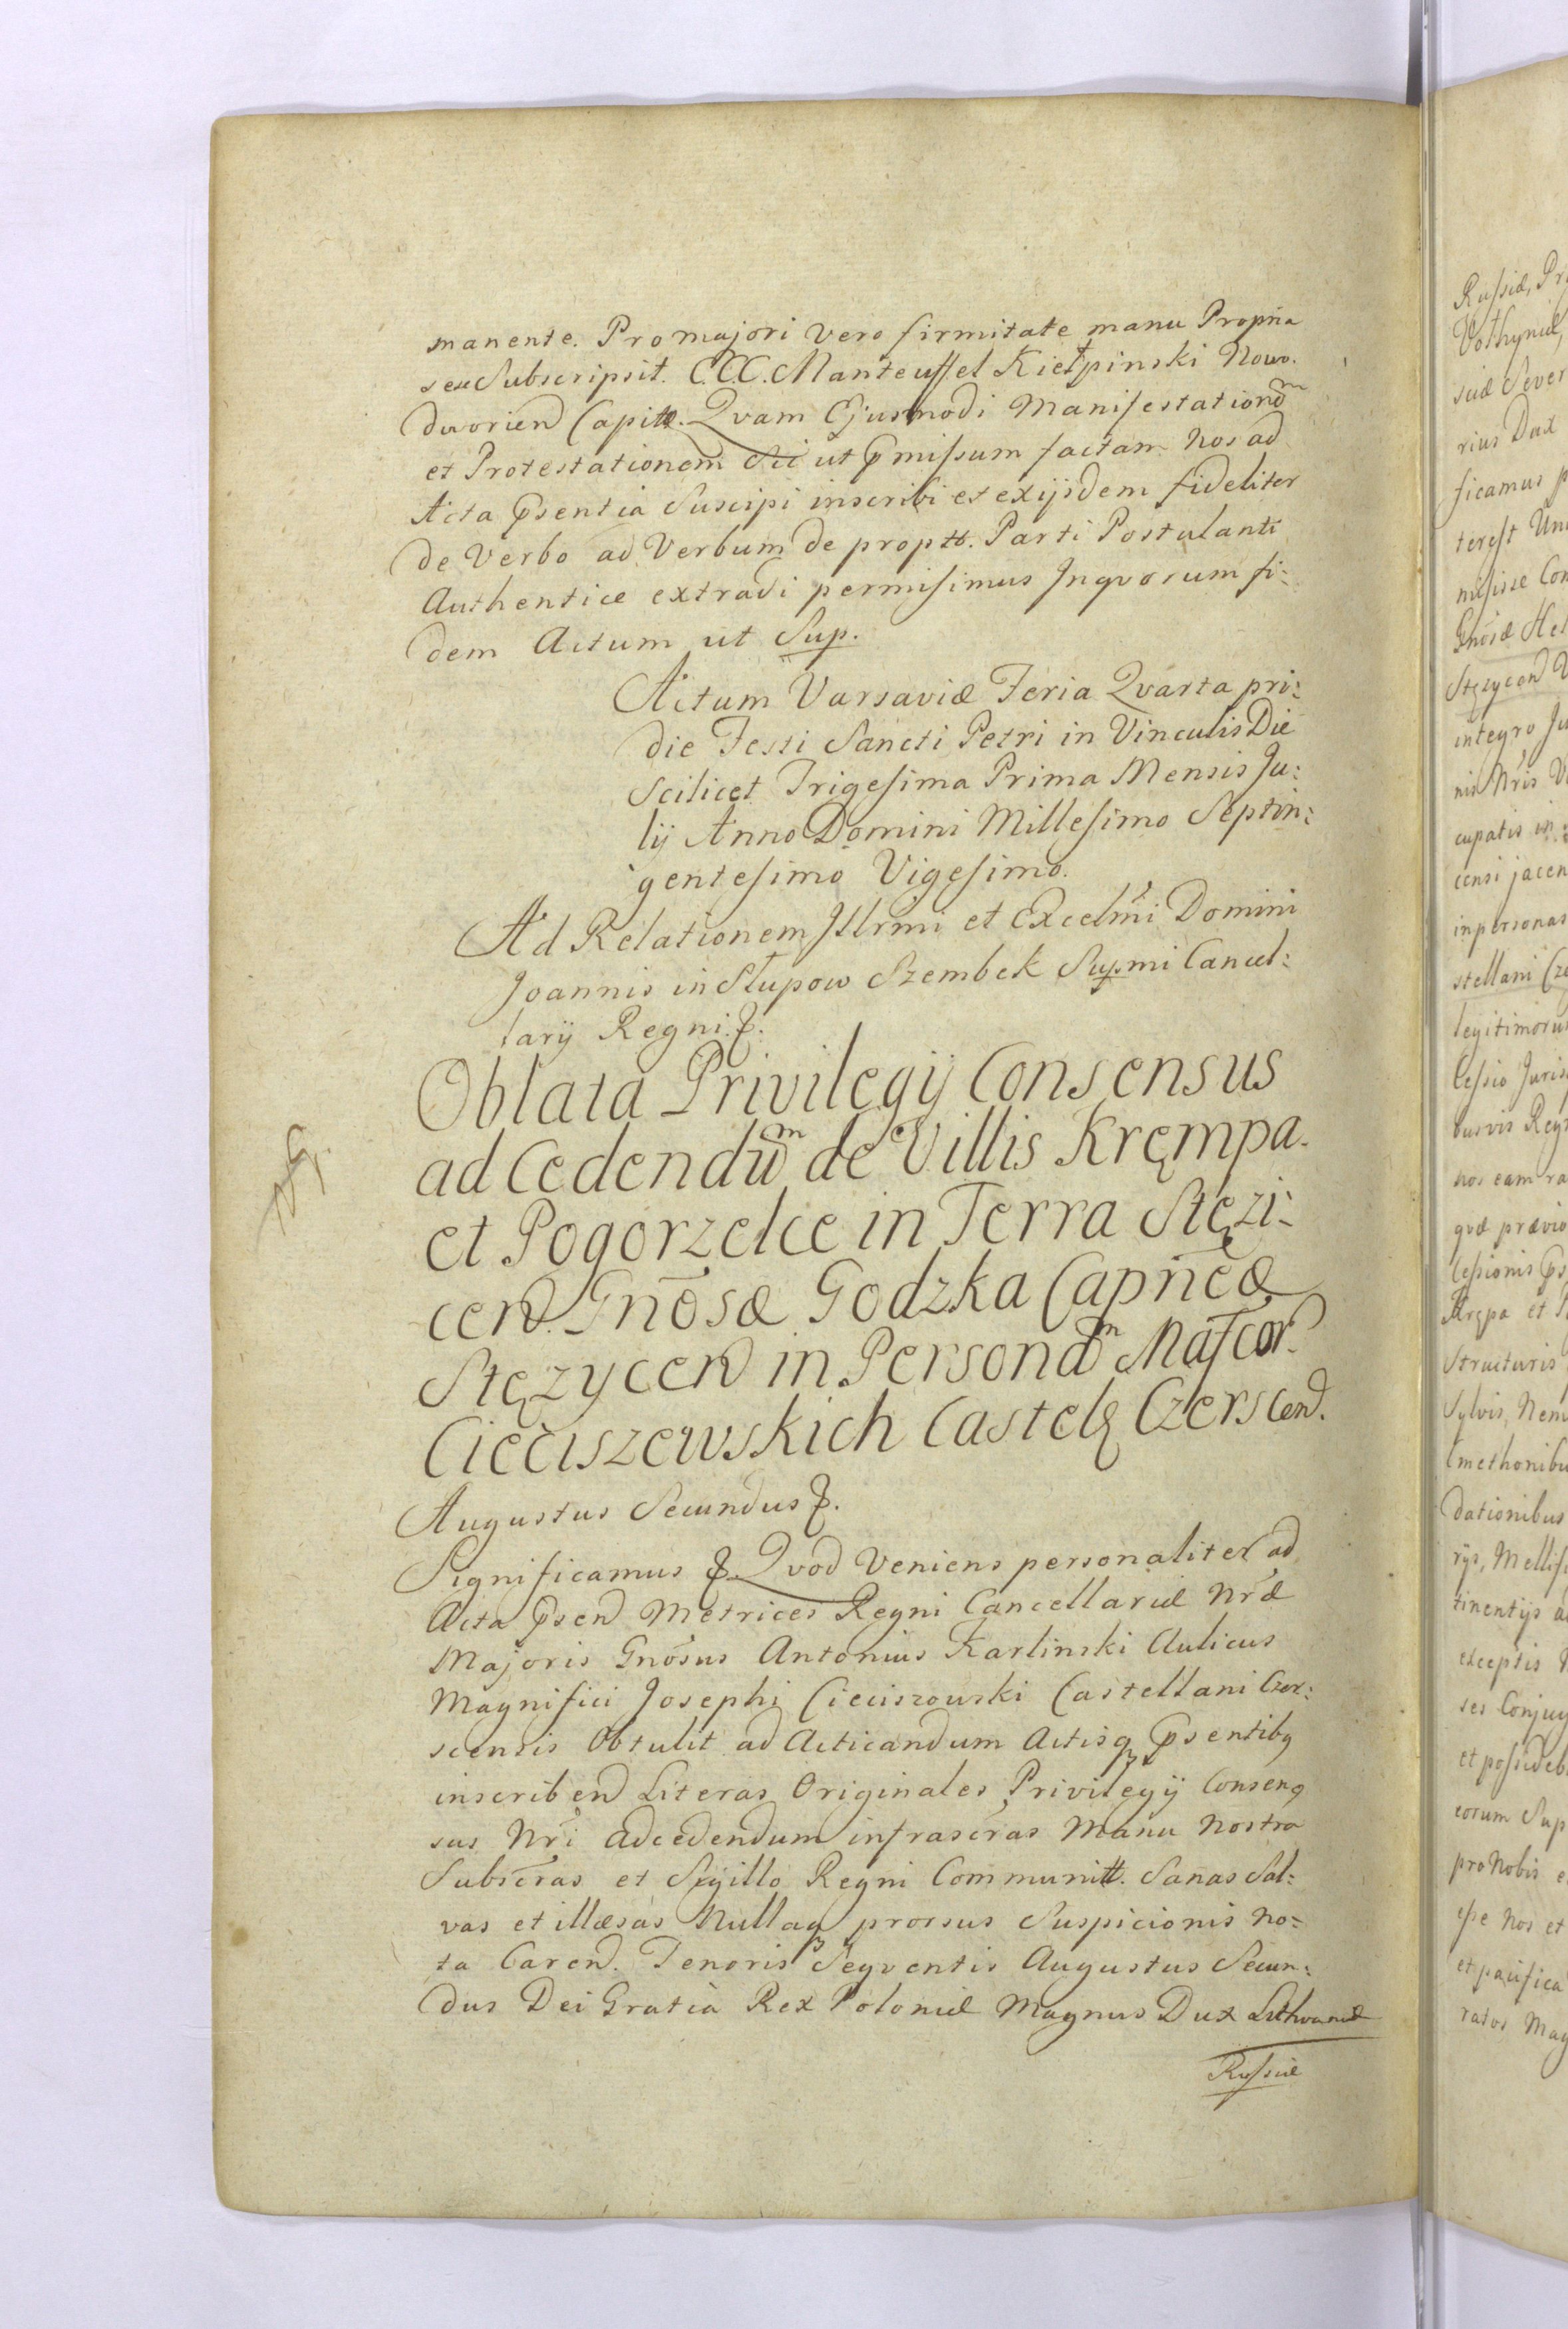 manente. Pro majori vero firmitate manu Propria
se Subscripsit. C.C.C. Manteuffel Kiełpinski Nowo.
dworien Capitæ. Qvam Ejusmodi Manifestationem
et Protestationem Sic ut Pmissum factam Nos ad
Acta Psentia Suscipi inscribi et exijsdem fideliter
de Verbo ad Verbum de proptt. Parti Postulanti
Authentice extradi permisimus Inqvorum fi:
dem Actum ut Sup.
Actum Varsaviæ Feria Qvarta pri:
die Festi Sancti Petri in Vinculis Die
Scilicet Trigesima Prima Mensis Ju:
lij Anno Domini Millesimo Septin:
gentesimo Vigesimo.
Ad Relationem Illrmi et Excelmi Domini
Joannis in Słupow Szembek Supmi Cancel:
larij Regni &.
Oblata Privilegij Consensus
ad Cedendum de Villis Krępa
et Pogorzelce in Terra Stęzi:
cen. Gnosæ Godzka Capneæ
Stęzycen in Personam Mafcor.
Cieciszewskich Castelq Czerscen.
Augustus Secundus &.
Significamus &. Qvod Veniens personaliter ad
Acta Psen Metrices Regni Cancellariæ Nræ
Majoris Gnosus Antonius Karlinski Aulicus
Magnifici Josephi Cieciszowski Castellani Czer:
scensis Obtulit ad Acticandum Actisq Psentibq
inscriben Literas Originales Privilegij Consen
sus Nri adcedendum infrascras Manu Nostra
Subscras et Sigillo Regni Communitt. Sanas Sal:
vas et illæsas Nullaq prorsus Suspicionis No:
ta Caren. Tenoris Seqventis Augustus Secun:
dus Dei Gratia Rex Poloniæ Magnus Dux Lithvaniæ
Russiæ
Russiæ, Pr
Volhyniæ,
siæ Sever
rius Dux
ficamus
terest Un
misisse Con
Gnosæ Hel
Stęzycen
integro Ju
nis Nris
cupatis in
censi jacen
in personas
stellani Cze
legitimoru
Cessio Juris
busvis Reg
nos eam ra
qvæ prævio
Cessionis Ps
Krępa et
Structuris
Sylvis, Nem
Cmethonibu
dationibus
rijs, Mellif
tinentijs a
exceptis
ses Conjug
et possideb
eorum Sup
pro Nobis e
esse Nos et
et pacifica
ratos Mag